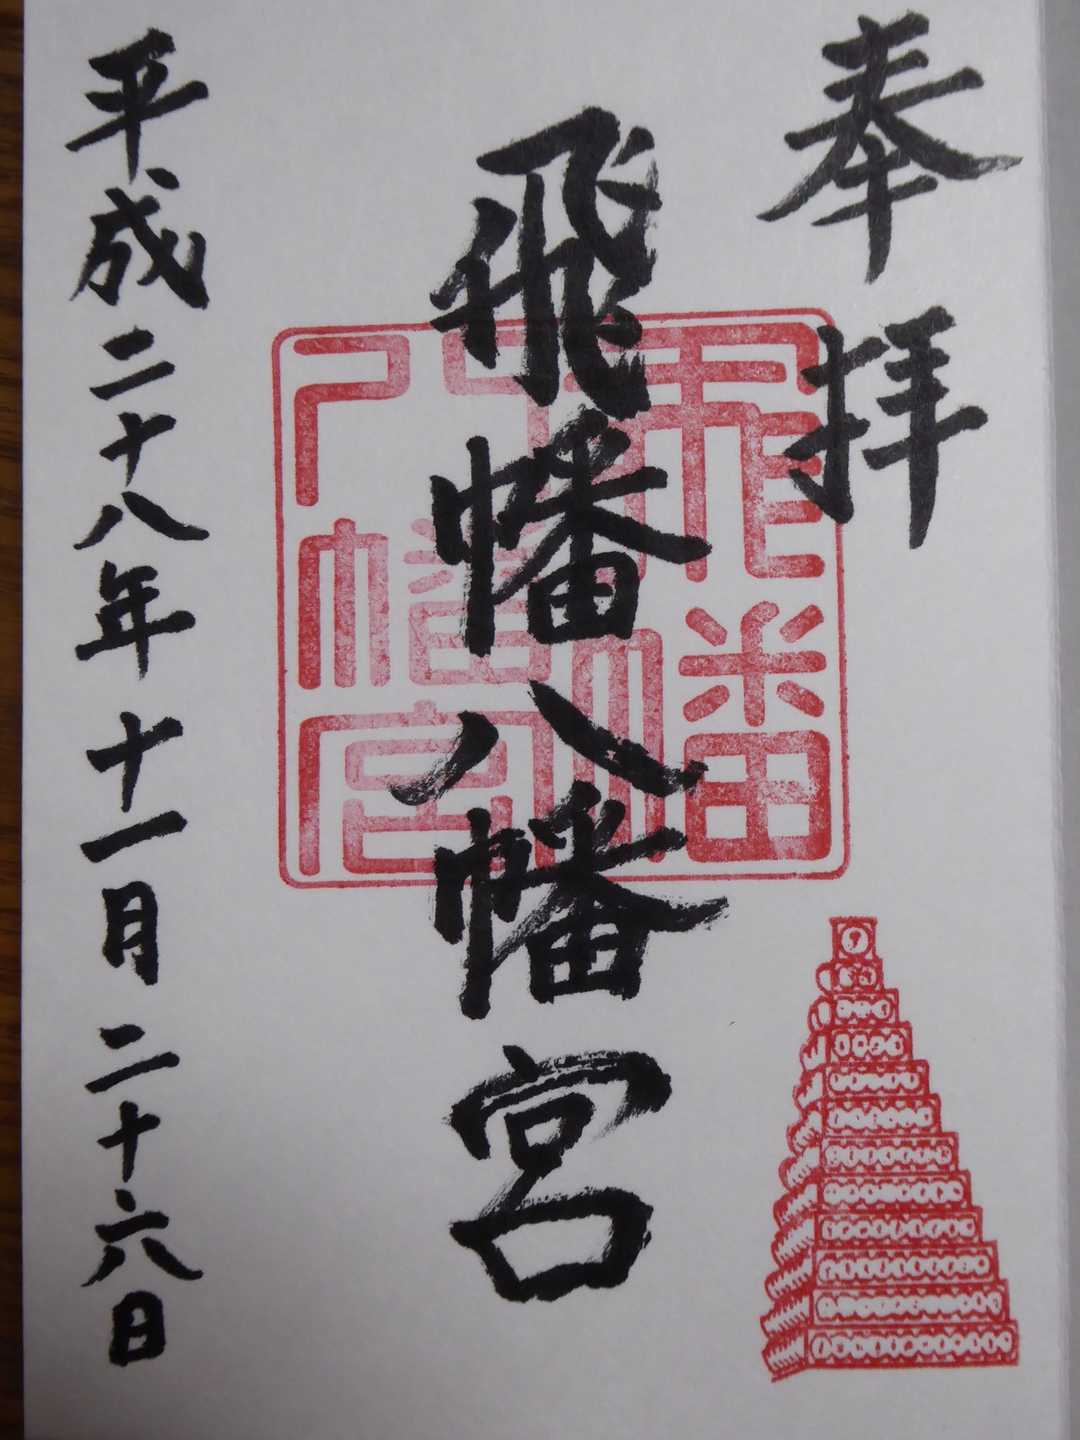 奉拝
飛幡八幡宮
飛幡
八幡宮
平成二十八年十一月二十六日